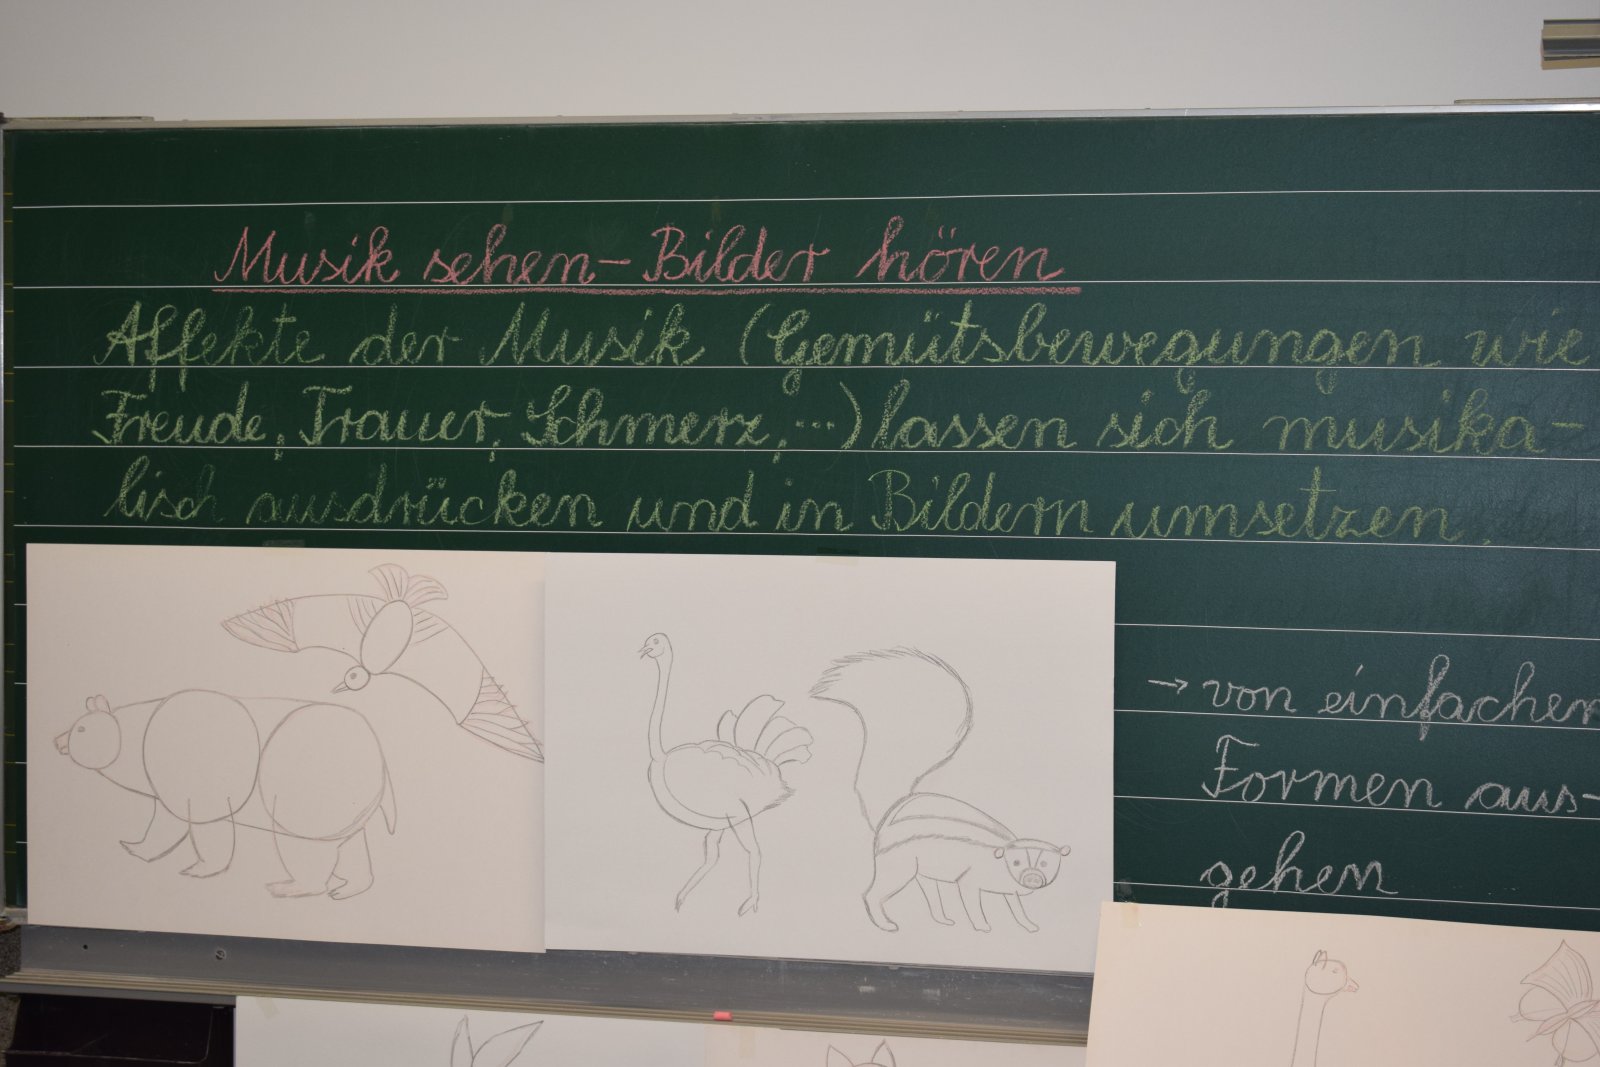 Musik sehen – Bilder hören
Affekte der Musik (Gemütsbewegungen wie
Freude, Trauer, Schmerz, ...) lassen sich musika-
lisch ausdrücken und in Bildern umsetzen.
→ von einfachen
Formen aus-
gehen